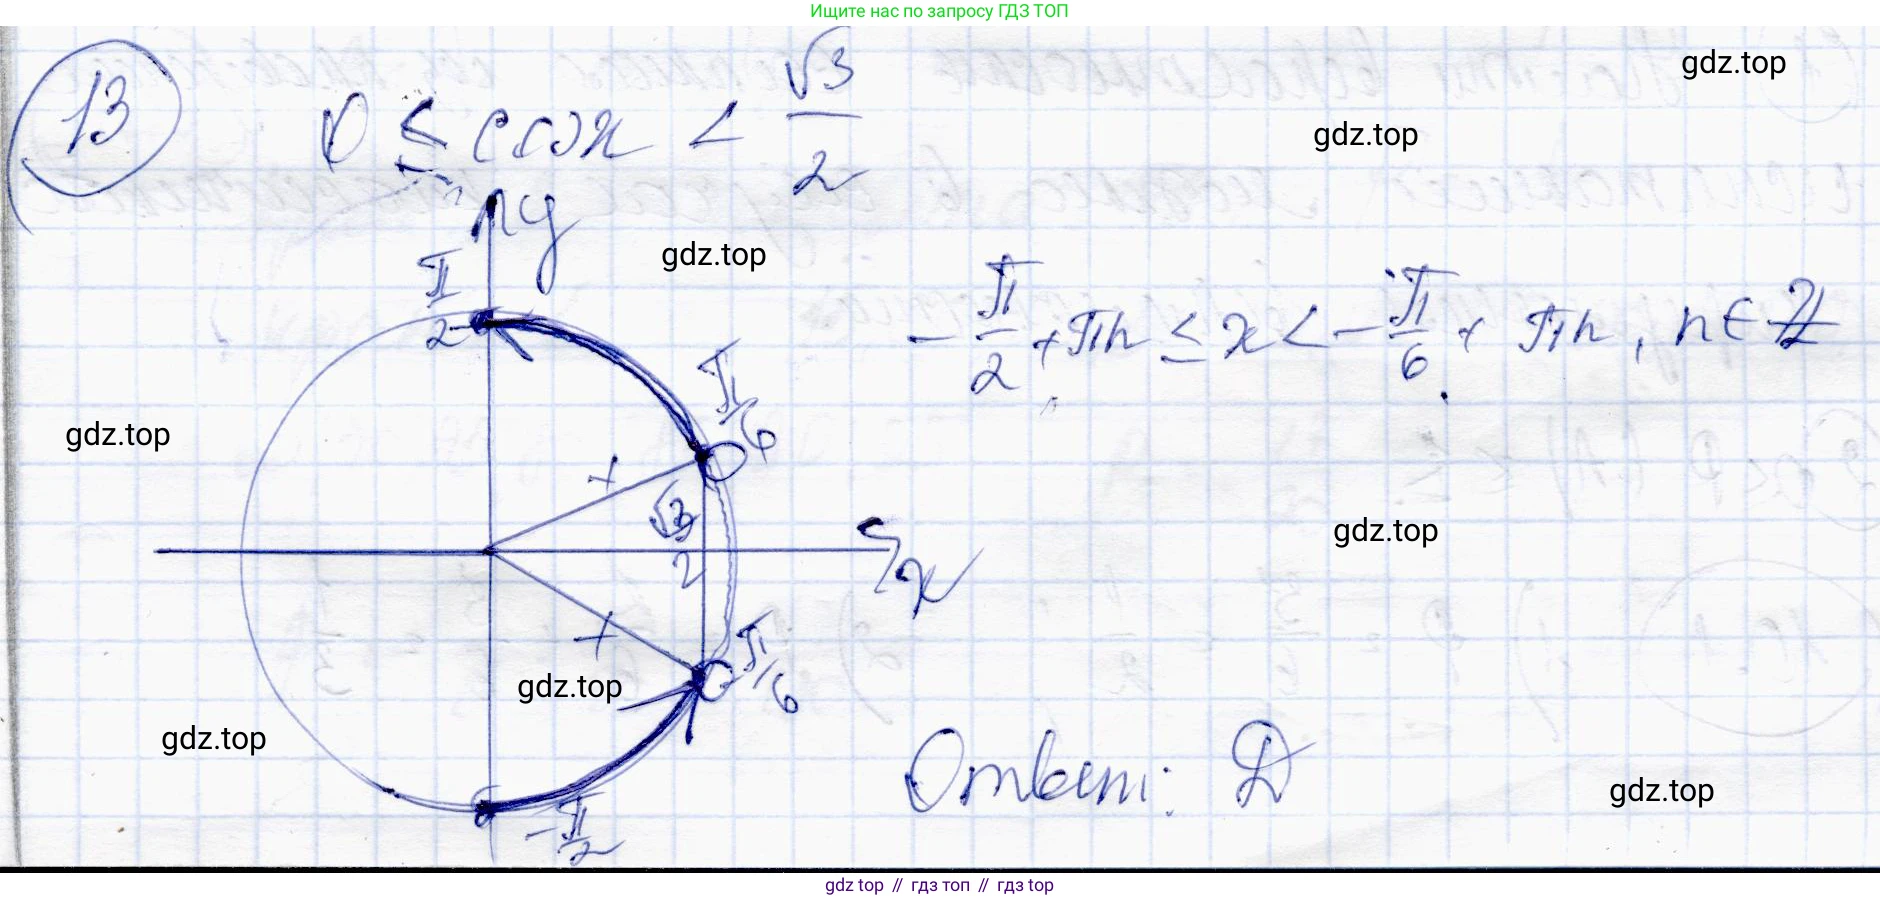 Ищите нас по запросу ГДЗ ТОП
gdz.top
13
0 ≤ cos x < √3/2
gdz.top
y
π/2
gdz.top
-π/2 + πn ≤ x < -π/6 + πn, n ∈ Z
π/6
gdz.top
√3/2
gdz.top
x
π/6
gdz.top
gdz.top
Ответ: D
gdz.top
-π/2
gdz top // гдз топ // gdz top